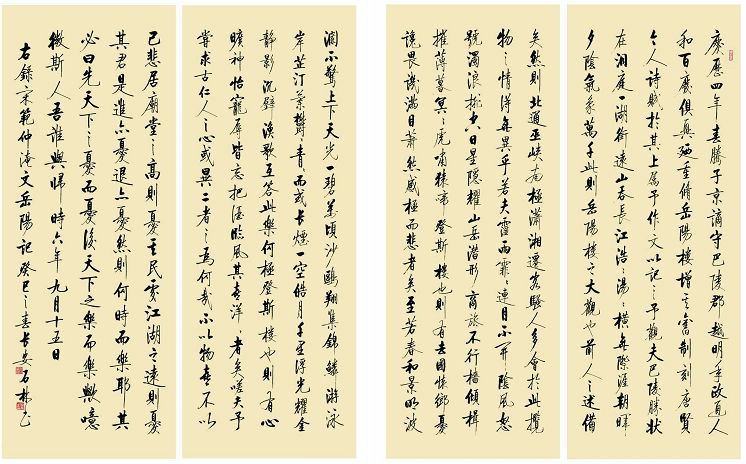 慶歷四年春滕子京謫守巴陵郡越明年政通人
和百廢俱興廼重脩岳陽樓增其舊制刻唐賢
今人詩賦於其上屬予作文以記之予觀夫巴陵勝狀
在洞庭一湖銜遠山吞長江浩々湯々橫無際涯朝暉
夕陰氣象萬千此則岳陽樓之大觀也前人之述備
矣然則北通巫峽南極瀟湘遷客騷人多會於此攬
物之情得無異乎若夫霪雨霏々連月不開陰風怒
號濁浪排空日星隱耀山岳潛形商旅不行檣傾楫
摧薄暮冥々虎嘯猿啼登斯樓也則有去國懷鄉憂
讒畏譏滿目蕭然感極而悲者矣至若春和景明波
瀾不驚上下天光一碧萬頃沙鷗翔集錦鱗游泳
岸芷汀蘭鬱々青々而或長煙一空皓月千里浮光耀金
靜影沉璧漁歌互答此樂何極登斯樓也則有心
曠神怡寵辱皆忘把酒臨風其喜洋々者矣嗟夫予
嘗求古仁人之心或異二者之為何哉不以物喜不以
己悲居廟堂之高則憂其民處江湖之遠則憂
其君是進亦憂退亦憂然則何時而樂耶其
必曰先天下之憂而憂後天下之樂而樂歟噫
微斯人吾誰與歸時六年九月十五日
右錄宋範仲淹文岳陽記癸巳之春長安石林書